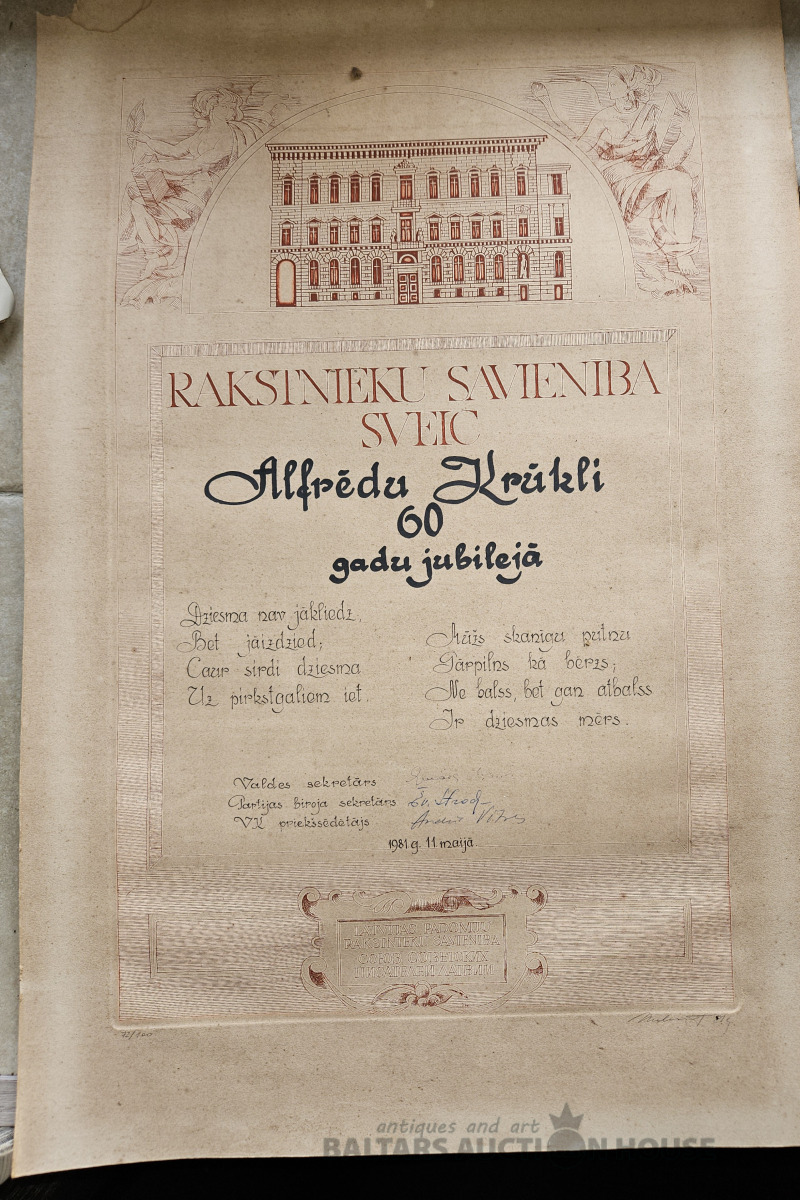 RAKSTNIEKU SAVIENĪBA
SVEIC
Alfrēdu Krūkli
60
gadu jubilejā
Dziesma nav jākliedz,
Bet jāizdzied;
Caur sirdi dziesma
Uz pirkstgaliem iet.
Mūžs skanīgu putnu
Pārpilns kā bērzs;
Ne balss, bet gan atbalss
Ir dziesmas mērs.
Valdes sekretārs
Partijas biroja sekretārs
VK priekšsēdētājs
1981 g. 11 maijā.
LATVIJAS PADOMJU
RAKSTNIEKU SAVIENĪBA
СОЮЗ СОВЕТСКИХ
ПИСАТЕЛЕЙ ЛАТВИИ
antiques and art
BALTARS AUCTION HOUSE